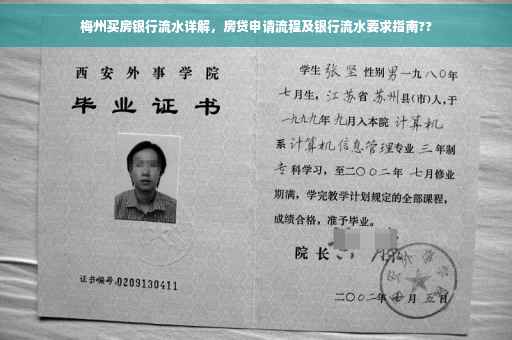 梅州买房银行流水详解，房贷申请流程及银行流水要求指南??
西安外事学院
毕业证书
证书编号:0209130411
学生 张坚 性别 男 一九八〇年
七月生，江苏省苏州县(市)人,于
一九九九年九月入本院 计算机
系 计算机信息管理专业 三 年制
专科学习，至二〇〇二年 七月修业
期满，学完教学计划规定的全部课程，
成绩合格，准予毕业。
院长
二〇〇二年 七 月 五 日